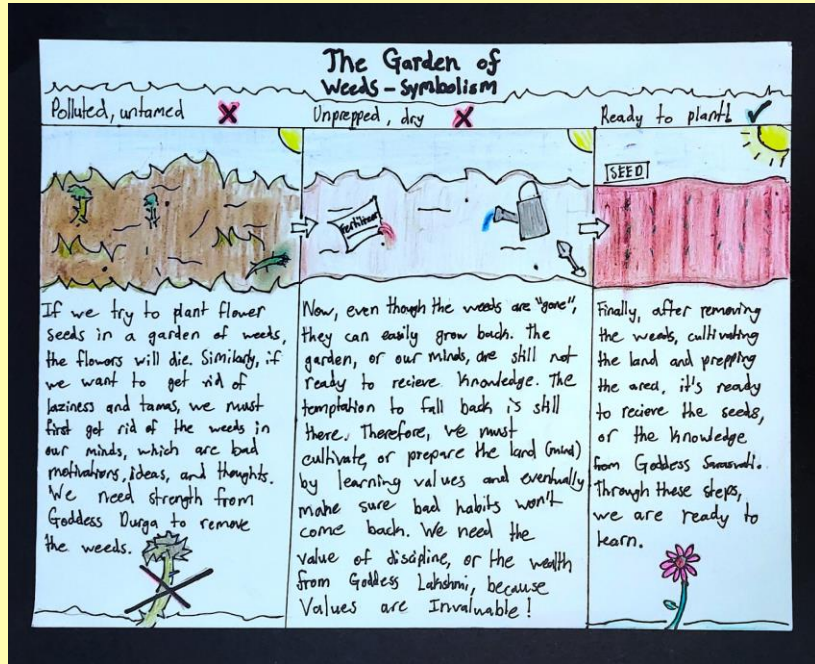 The Garden of
Weeds - Symbolism
Polluted, untamed
If we try to plant flower
seeds in a garden of weeds,
the flowers will die. Similarly, if
we want to get rid of
laziness and tamas, we must
first get rid of the weeds in
our minds, which are bad
motivations, ideas, and thoughts.
We need strength from
Goddess Durga to remove
the weeds.
Unprepped, dry
Fertilizer
Now, even though the weeds are "gone",
they can easily grow back. The
garden, or our minds, are still not
ready to recieve knowledge. The
temptation to fall back is still
there. Therefore, we must
cultivate, or prepare the land (mind)
by learning values and eventually
make sure bad habits won't
come back. We need the
value of discipline, or the wealth
from Goddess Lakshmi, because
Values are Invaluable!
Ready to plant!
SEED
Finally, after removing
the weeds, cultivating
the land and prepping
the area, it's ready
to recieve the seeds,
or the knowledge
from Goddess Sarasvati.
Through these steps,
we are ready to
learn.